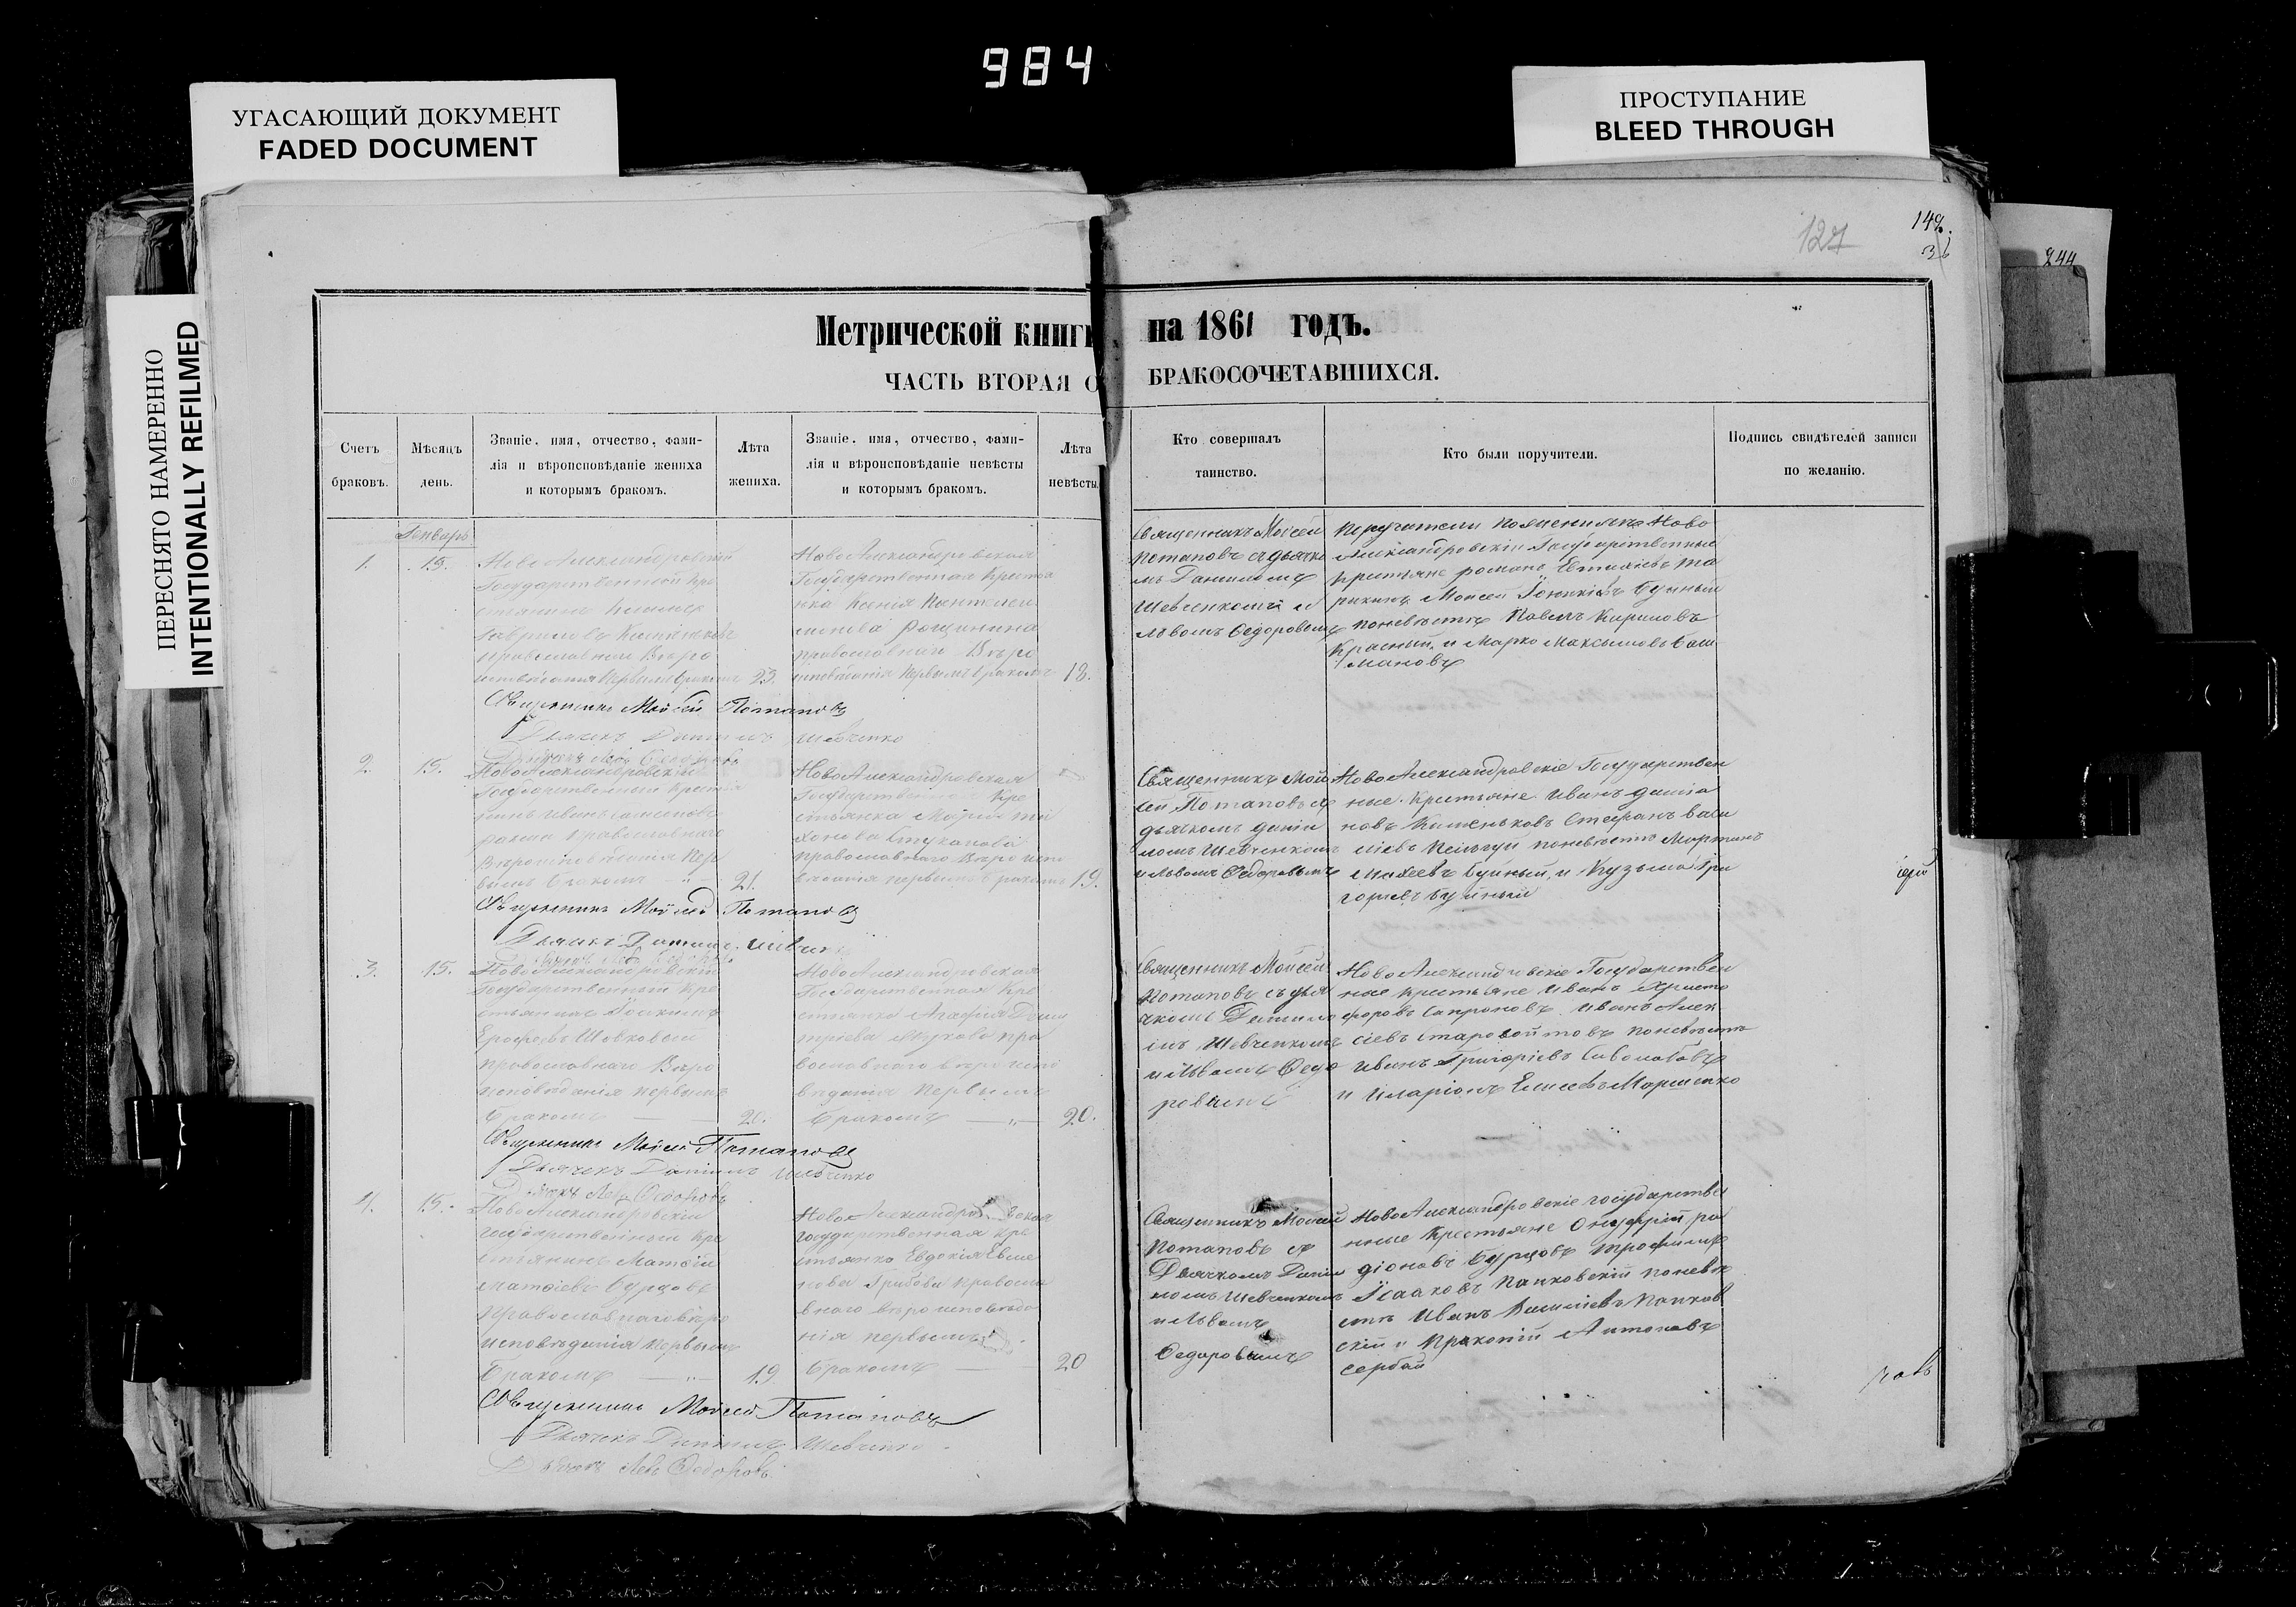 984
УГАСАЮЩИЙ ДОКУМЕНТ
FADED DOCUMENT
ПРОСТУПАНИЕ
BLEED THROUGH
ПЕРЕСНЯТО НАМЕРЕННО
INTENTIONALLY REFILMED
127
244
Метрической книги на 1861 годъ.
ЧАСТЬ ВТОРАЯ О БРАКОСОЧЕТАВШИХСЯ.
Счетъ
браковъ.
Мѣсяцъ
день.
Званіе, имя, отчество, фами-
лія и вѣроисповѣданіе жениха
и которымъ бракомъ.
Лѣта
жениха.
Званіе, имя, отчество, фами-
лія и вѣроисповѣданіе невѣсты
и которымъ бракомъ.
Лѣта
невѣсты.
Кто совершалъ
таинство.
Кто были поручители.
Подпись свидѣтелей записи
по желанію.
Январь
1.
15.
Ново Александровскій
Государственной кре
православнаго Вѣро
исповѣданія первымъ бракомъ
23.
Ново Александровская
Государственная Крестья
нка Ксенія Пантелей
монова Рощинина
православнаго Вѣро
исповѣданія первымъ бракомъ
18.
Священникъ Моисей
Потаповъ съ дьячко
мъ Даниломъ
Шевченкомъ и
Львомъ Федоровымъ
Поручители по женихѣ Ново
Александровскіе Государственные
крестьяне
Моисей
по невѣстѣ Павелъ Кириловъ
Красный и Марко Максимовъ Баш
мановъ
Священникъ Моисей Потаповъ
Дьячекъ Даніилъ Шевченко
Дьячекъ Левъ Федоровъ
2.
15.
Ново Александровскій
Государственный крестья
нинъ Иванъ
православнаго
Вѣроисповѣданія пер
вымъ бракомъ
21.
Ново Александровская
Государственная Кре
стьянка Марія Ти
хонова Стуканова
православнаго Вѣроиспо
вѣданія первымъ бракомъ
19.
Священникъ Мои
сей Потаповъ съ
дьячкомъ Даніи
ломъ Шевченкомъ
и Львомъ Федоровымъ
Ново Александровскіе Государствен
ные Крестьяне Иванъ Даніи
ловъ Каменьковъ Стефанъ Васи
ліевъ по невѣстѣ Мартинъ
Михеевъ Буйный, и Кузьма Гри
горьевъ Буйный
Священникъ Моисей Потаповъ
Дьячекъ Даніилъ Шевченко
3.
15.
Ново Александровскій
Государственный кре
стьянинъ Іоакимъ
Ерофеевъ Шовковый
православнаго Вѣро
исповѣданія первымъ
бракомъ
20.
Ново Александровская
Государственная Кре
стьянка Агафія Дими
тріева Жукова пра
вославнаго вѣроиспо
вѣданія первымъ
бракомъ
20.
Священникъ Моисей
Потаповъ съ дья
чкомъ Данило
мъ Шевченкомъ
и Львомъ Федо
ровымъ
Ново Александровскіе Государствен
ные крестьяне Иванъ Христо
форовъ Сапроновъ Иванъ Алек
сіевъ Старовойтовъ по невѣстѣ
Иванъ Григоріевъ
и Иларіонъ
Священникъ Моисей Потаповъ
Дьячекъ Даніилъ Шевченко
Дьячекъ Левъ Федоровъ
4.
15.
Ново Александровскій
государственный кре
стьянинъ Матѳій
Матѳіевъ Бурцовъ
православнаго вѣро
исповѣданія первымъ
бракомъ
19.
Ново Александровская
государственная кре
стьянка Евдокія Евсе
нова Грибова правосла
внаго вѣроисповѣда
нія первымъ
бракомъ
20
Священникъ Моисей
Потаповъ съ
Дьячкомъ Даніи
ломъ Шевченкомъ
и Львомъ
Федоровымъ
Ново Александровскіе государствен
ные крестьяне Онуфрій Ро
діоновъ Бурцовъ Трофимъ
Исааковъ Панковскій по невѣ
стѣ Иванъ Василіевъ Панков
скій и Прокопій Антоновъ
Сербай
Священникъ Моисей Потаповъ
Дьячекъ Даніилъ Шевченко
Дьячекъ Левъ Федоровъ